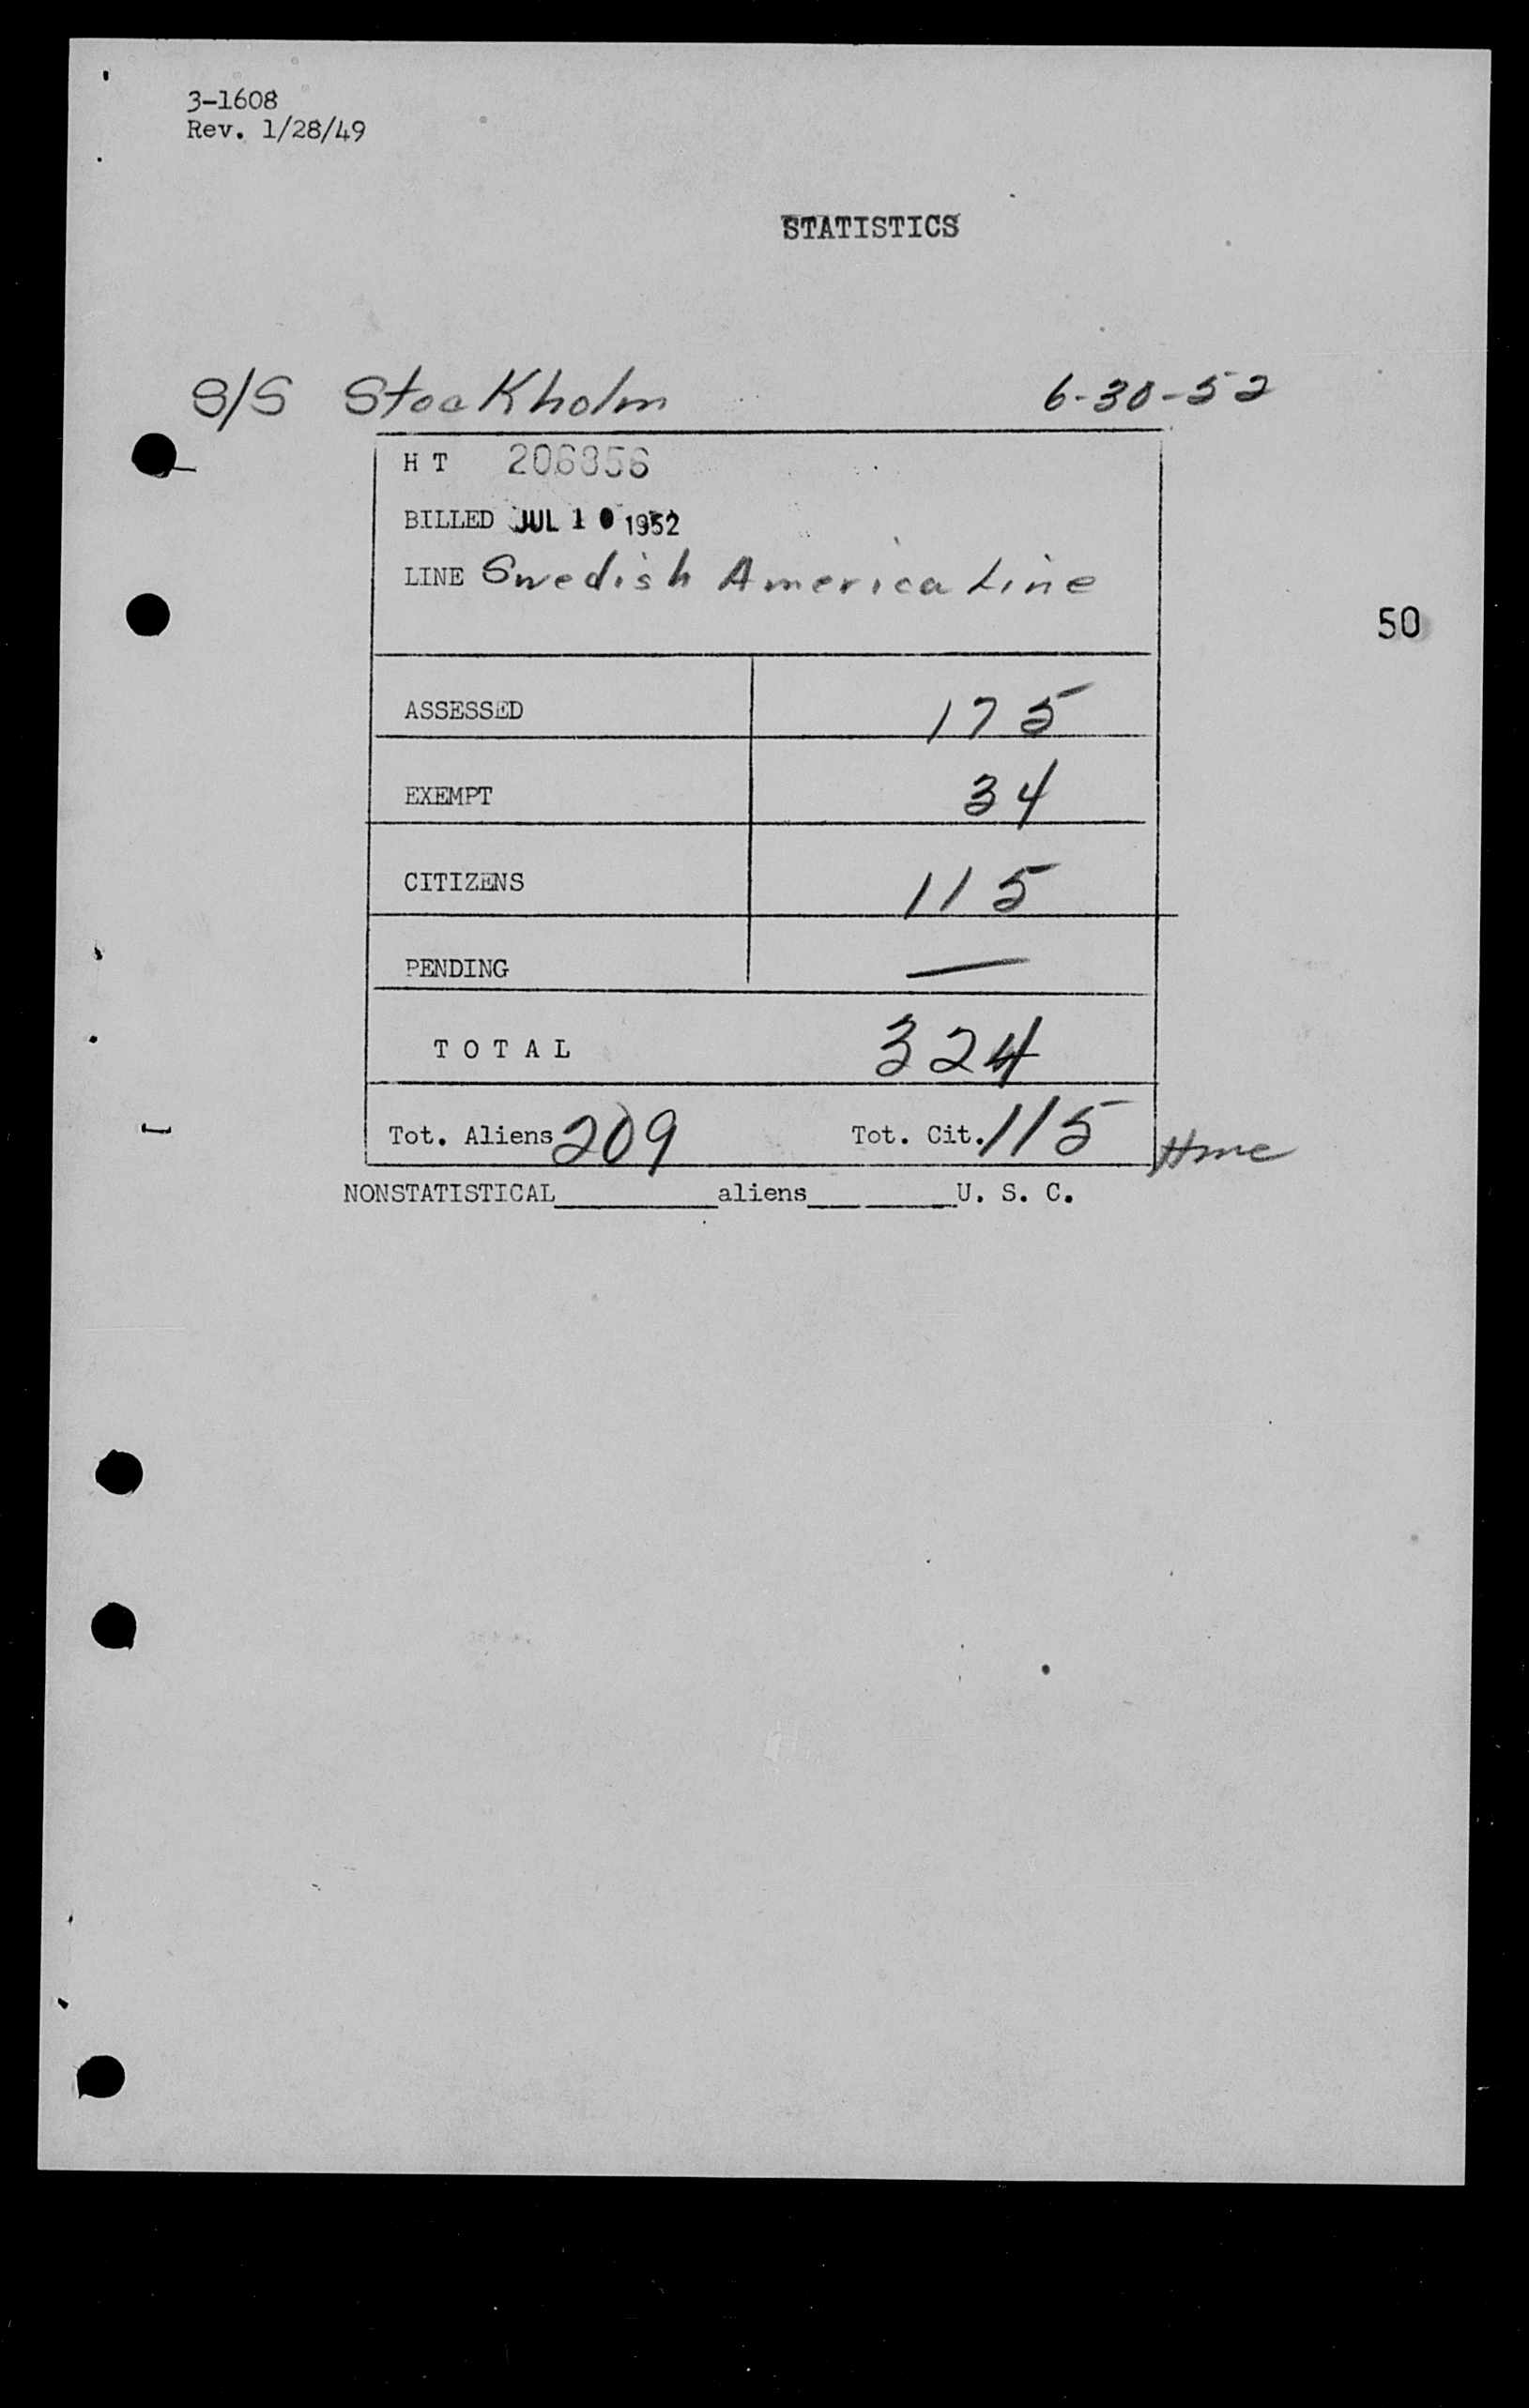 3-1608
Rev. 1/28/49
STATISTICS
S/S Stockholm 6-30-52
H T 206856
BILLED JUL 10 1952
LINE Swedish America Line
50
ASSESSED 175
EXEMPT 34
CITIZENS 115
PENDING —
T O T A L 324
Tot. Aliens 209 Tot. Cit. 115
NONSTATISTICAL__________aliens_________U. S. C.